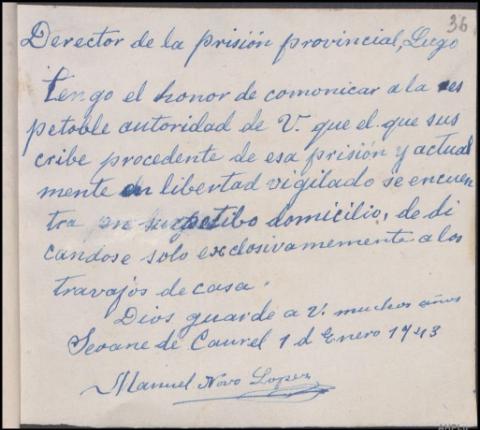 36
Derector de la prisión provincial, Lugo
Tengo el honor de comonicar a la res
petoble autoridad de V. que el que sus
cribe procedente de esa prisión y actual
mente en libertad vigilado se encuen
tra en supetibo domicilio, de di
candose solo exclosivamemente a los
travajos de casa.
Dios guarde a V. muchos años
Seoane de Caurel 1 d Enero 1943
Manuel Novo Lopez